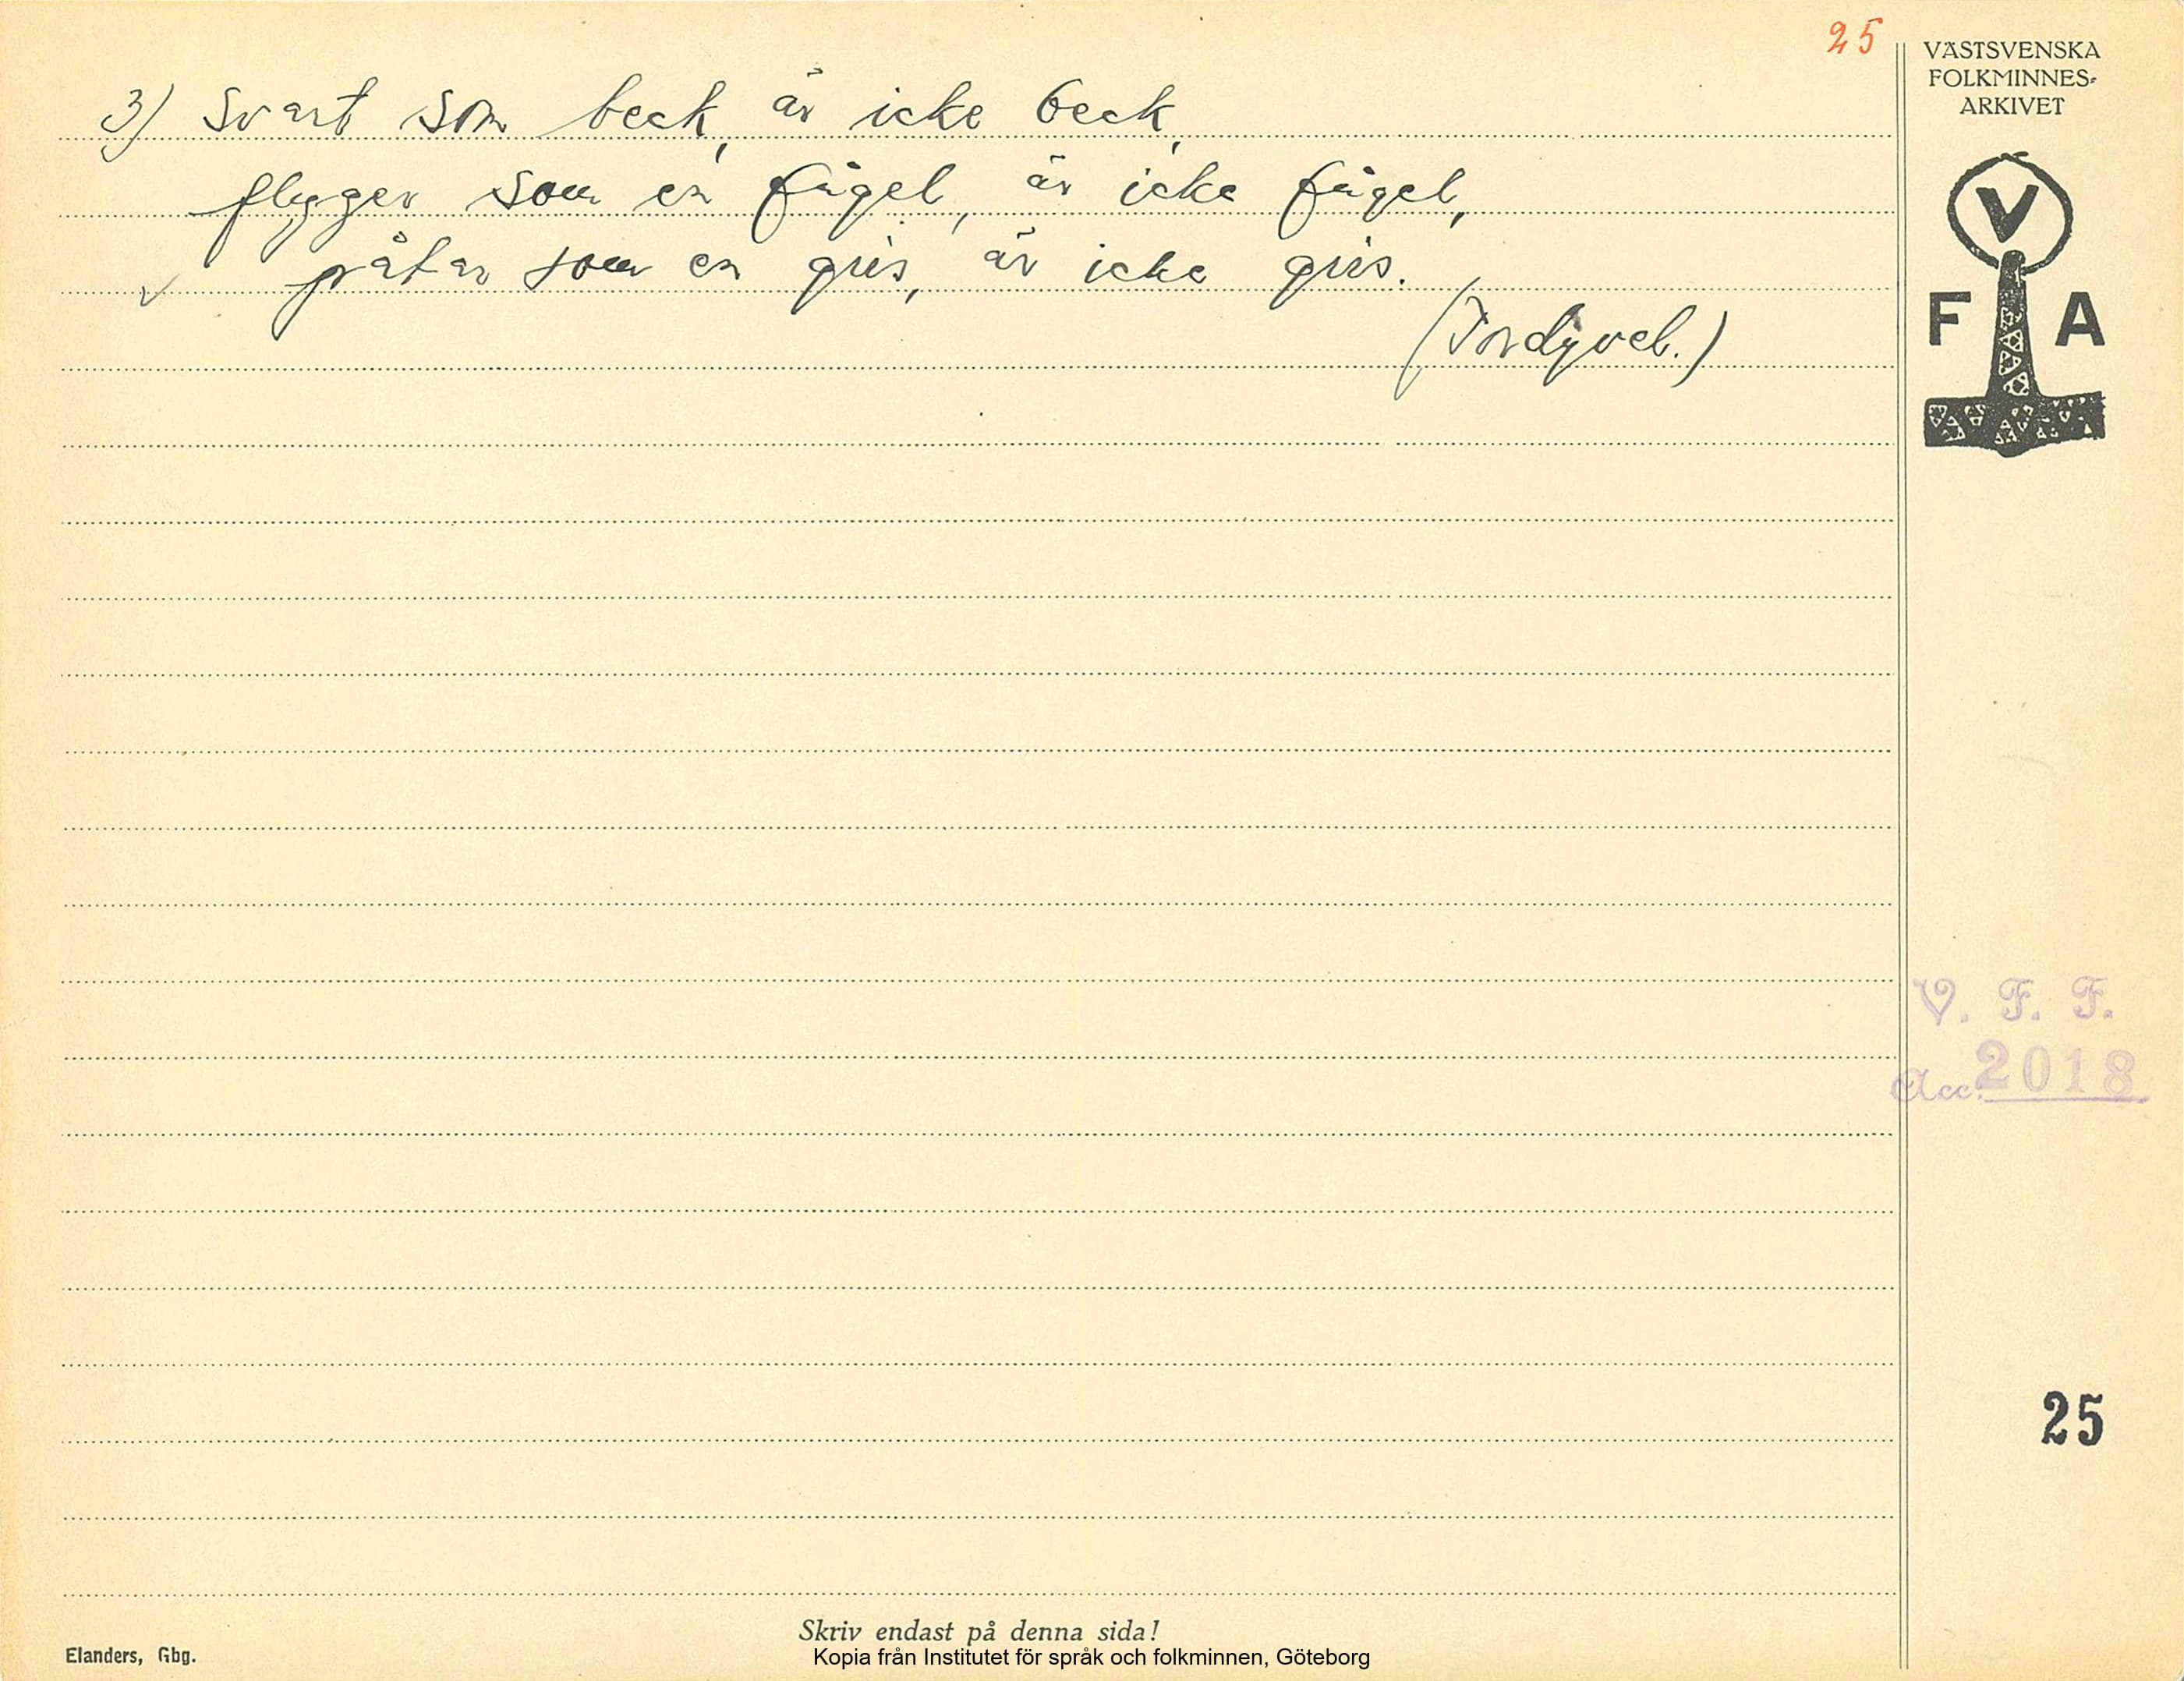 25
VÄSTSVENSKA
FOLKMINNES-
ARKIVET
V
F A
3) Svart som beck, är icke beck,
flyger som en fågel, är icke fågel,
v påtar som en gris, är icke gris.
(Tordyvel.)
V. F. F.
Acc. 2018
25
Skriv endast på denna sida!
Elanders, Gbg.
Kopia från Institutet för språk och folkminnen, Göteborg